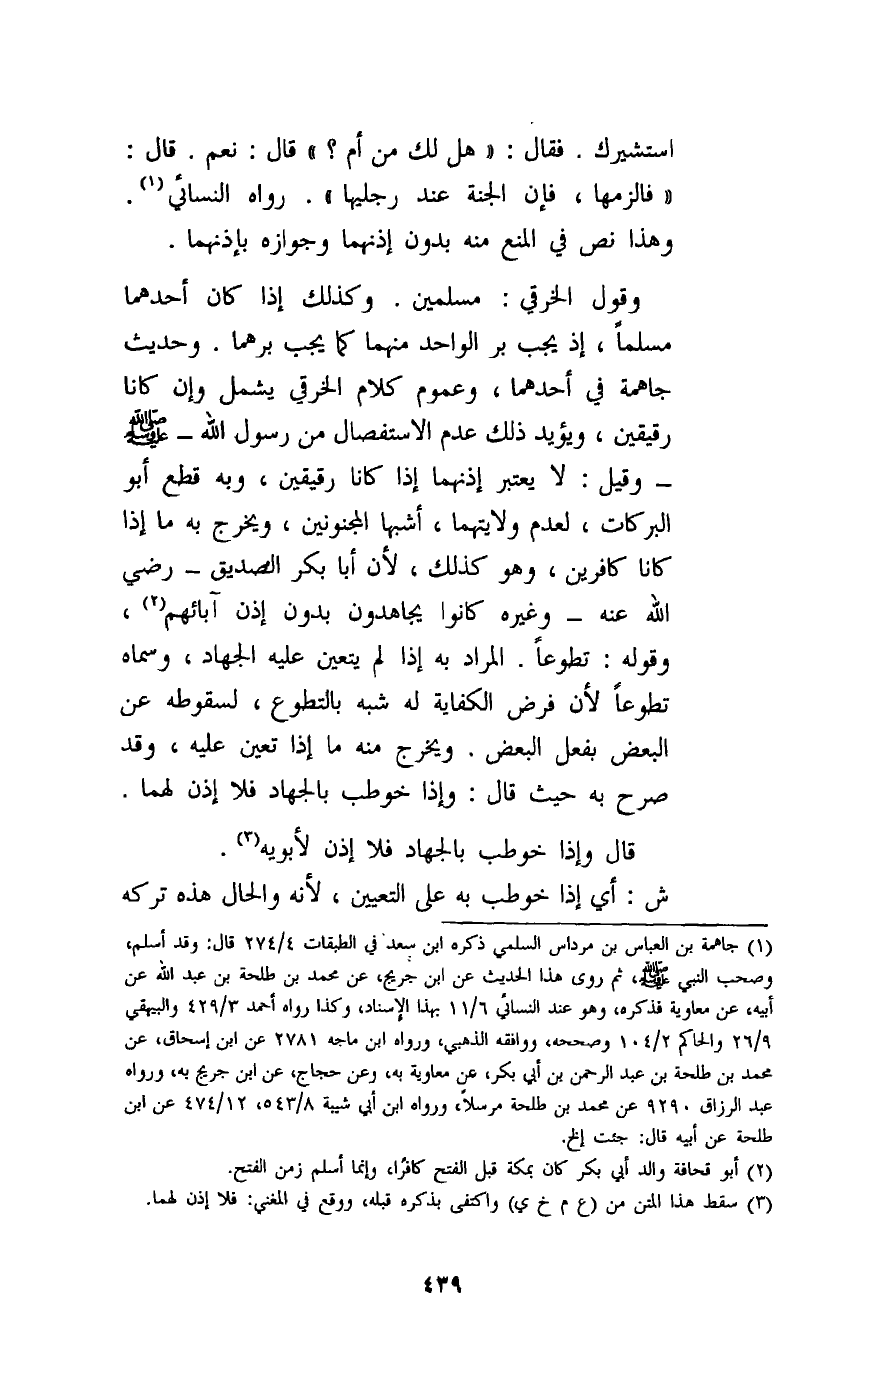 استشيرك . فقال : « هل لك من أم ؟ » قال : نعم . قال :
« فالزمها ، فإن الجنة عند رجليها » . رواه النسائي(١) .
وهذا نص في المنع منه بدون إذنهما وجوازه بإذنهما .
وقول الخرقي : مسلمين . وكذلك إذا كان أحدهما
مسلماً ، إذ يجب بر الواحد منهما كما يجب برهما . وحديث
جاهمة في أحدهما ، وعموم كلام الخرقي يشمل وإن كانا
رقيقين ، ويؤيد ذلك عدم الاستفصال من رسول الله ــ ﷺ
ــ وقيل : لا يعتبر إذنهما إذا كانا رقيقين ، وبه قطع أبو
البركات ، لعدم ولايتهما ، أشبها المجنونين ، ويخرج به ما إذا
كانا كافرين ، وهو كذلك ، لأن أبا بكر الصديق ــ رضي
الله عنه ــ وغيره كانوا يجاهدون بدون إذن آبائهم(٢) ،
وقوله : تطوعاً . المراد به إذا لم يتعين عليه الجهاد ، وسماه
تطوعاً لأن فرض الكفاية له شبه بالتطوع ، لسقوطه عن
البعض بفعل البعض . ويخرج منه ما إذا تعين عليه ، وقد
صرح به حيث قال : وإذا خوطب بالجهاد فلا إذن لهما .
قال وإذا خوطب بالجهاد فلا إذن لأبويه(٣) .
ش : أي إذا خوطب به على التعيين ، لأنه والحال هذه تركه
(١) جاهمة بن العباس بن مرداس السلمي ذكره ابن سعد في الطبقات ٢٧٤/٤ قال: وقد أسلم،
وصحب النبي ﷺ، ثم روى هذا الحديث عن ابن جريج، عن محمد بن طلحة بن عبد الله عن
أبيه، عن معاوية فذكره، وهو عند النسائي ١١/٦ بهذا الإسناد، وكذا رواه أحمد ٤٢٩/٣ والبيهقي
٢٦/٩ والحاكم ١٠٤/٢ وصححه، ووافقه الذهبي، ورواه ابن ماجه ٢٧٨١ عن ابن إسحاق، عن
محمد بن طلحة بن عبد الرحمن بن أبي بكر، عن معاوية به، وعن حجاج، عن ابن جريج به، ورواه
عبد الرزاق ٩٢٩٠ عن محمد بن طلحة مرسلاً، ورواه ابن أبي شيبة ٥٤٣/٨، ٤٧٤/١٢ عن ابن
طلحة عن أبيه قال: جئت إلخ.
(٢) أبو قحافة والد أبي بكر كان بمكة قبل الفتح كافرًا، وإنما أسلم زمن الفتح.
(٣) سقط هذا المتن من (ع م خ ي) واكتفى بذكره قبله، ووقع في المغني: فلا إذن لهما.
٤٣٩